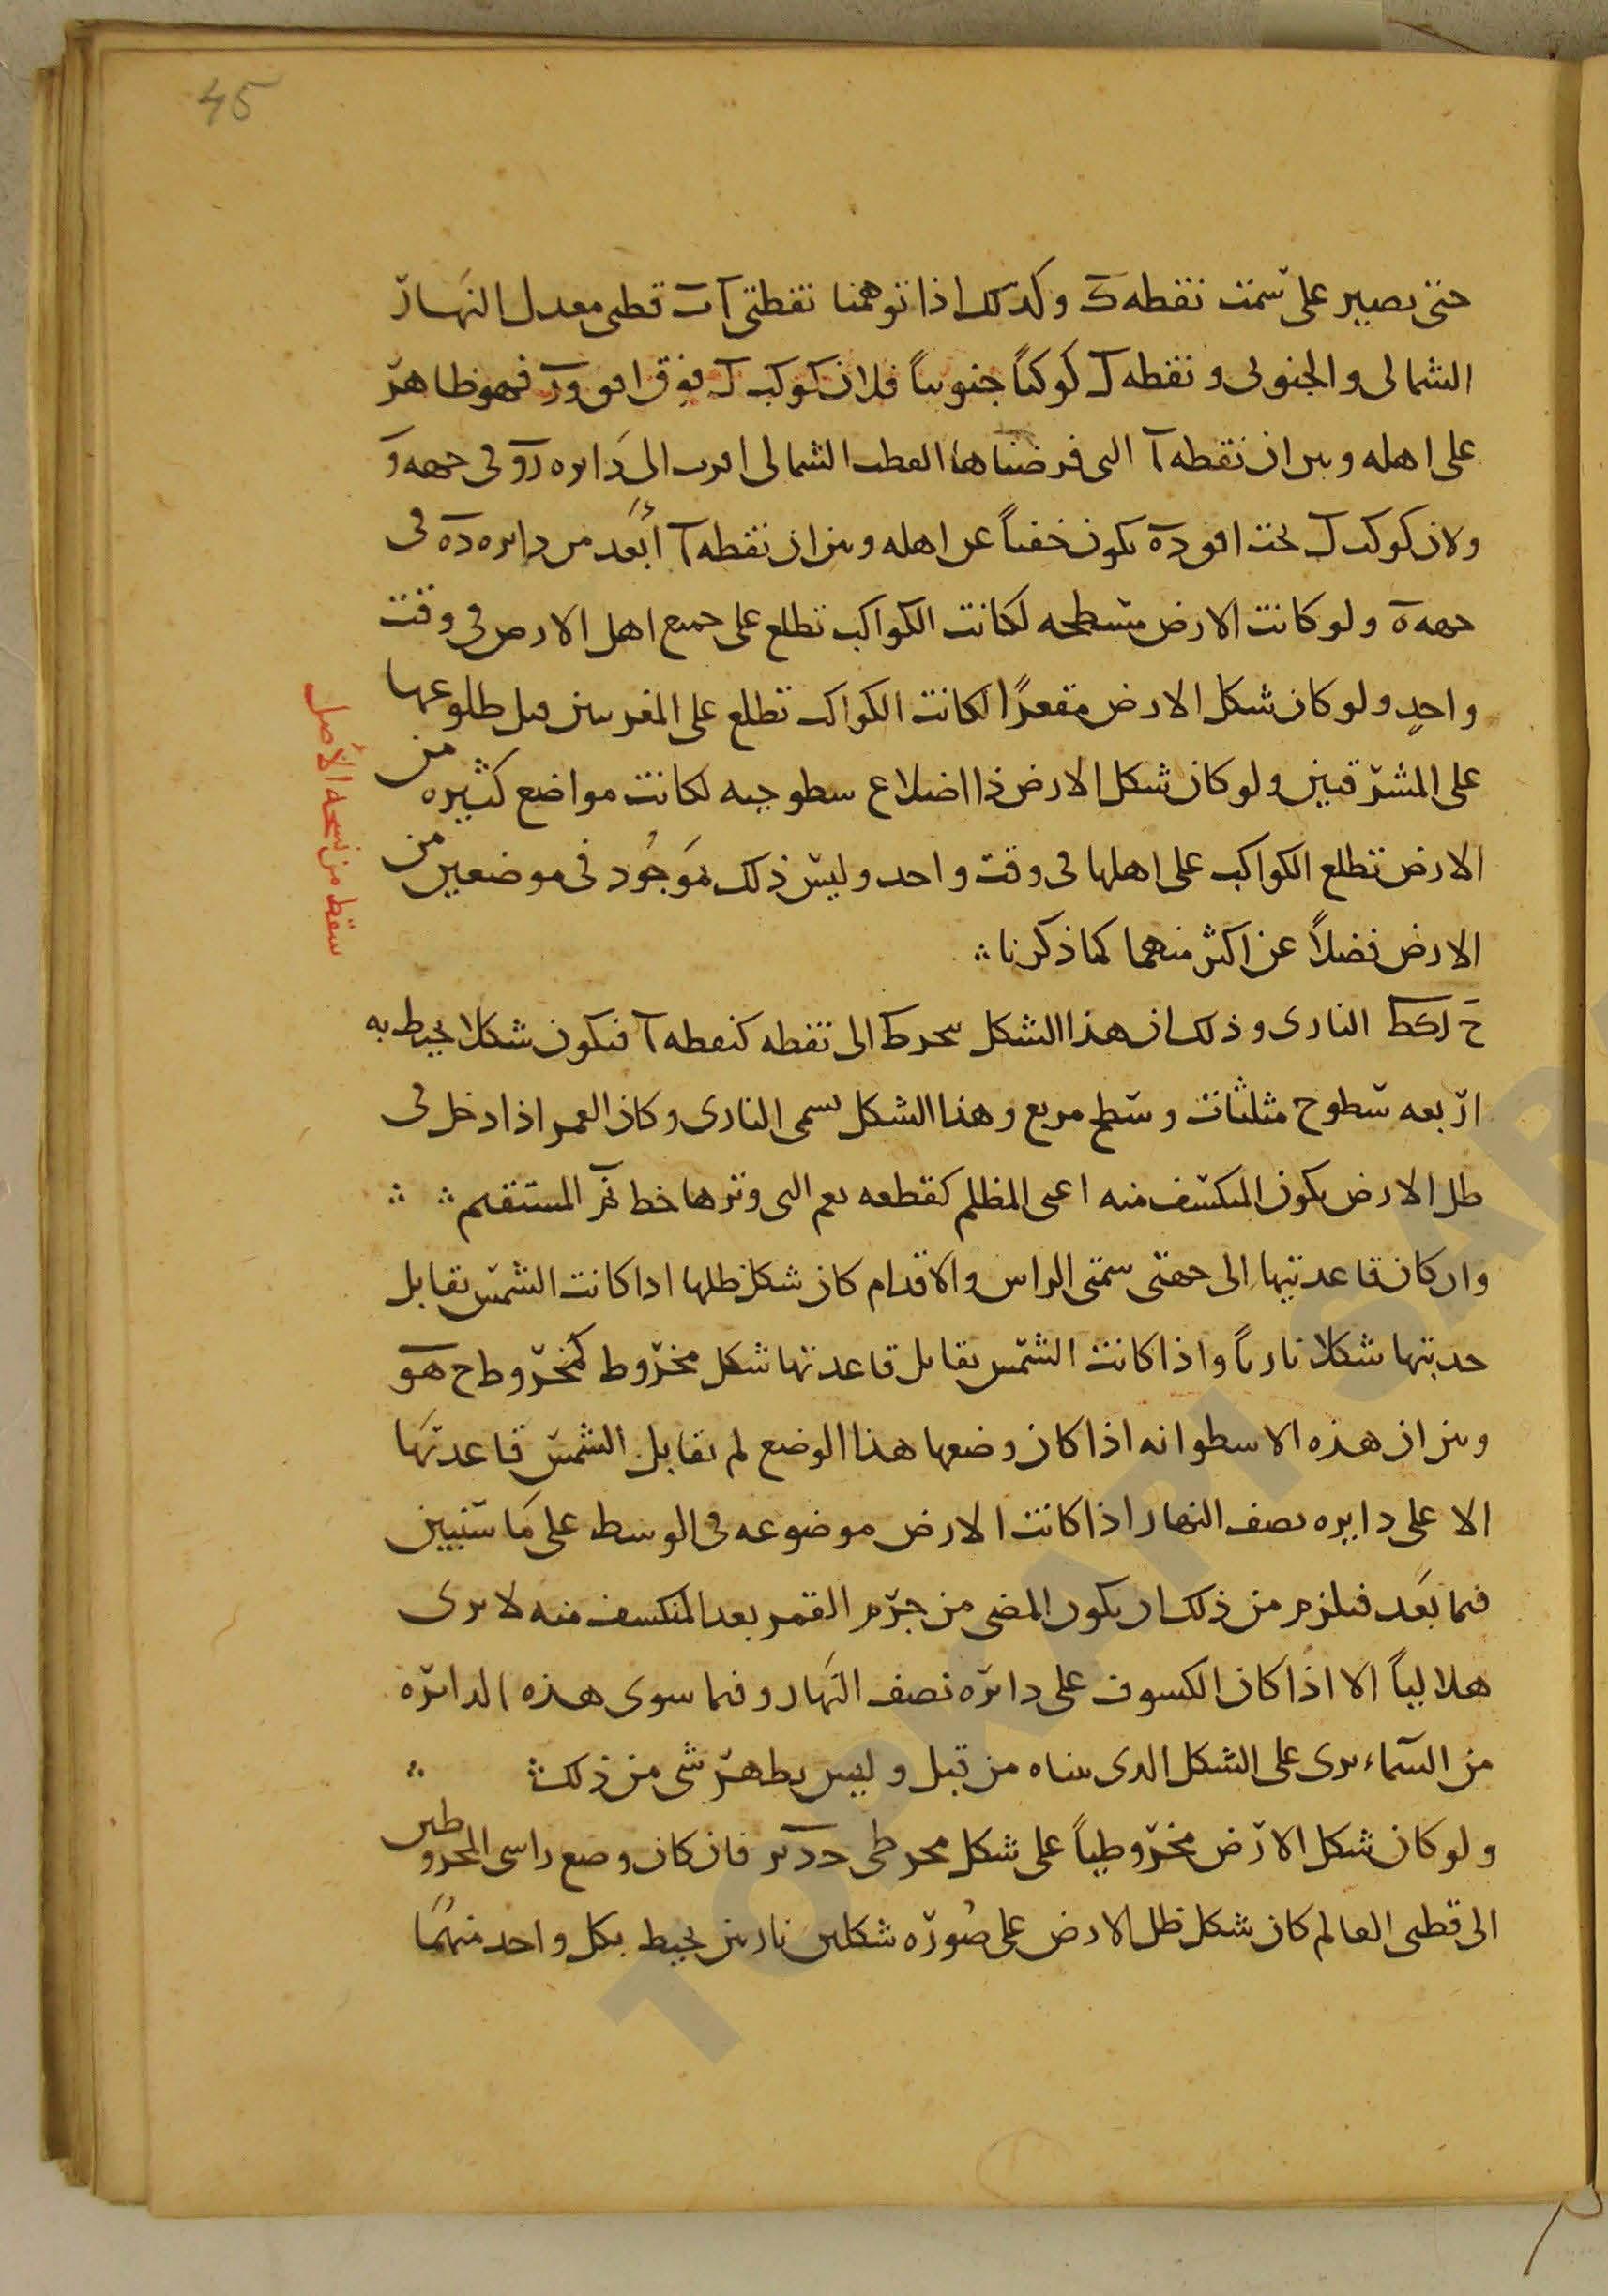 45
حتى يصير على سمت نقطه ك وكذلك اذا توهمنا نقطتي آ ب قطبي معدل النهار
الشمالي والجنوبي ونقطه ل كوكباً جنوبياً فلان كوكب ل فوق افق ور فهو ظاهر
على اهله وبين ان نقطه آ التي فرضناها القطب الشمالي اقرب الى دايره رو في جهه و
ولان كوكب ل تحت افق ده يكون خفياً عن اهله وبين ان نقطه آ أبعد من دايره ده في
جهه ه ولو كانت الارض مسطحه لكانت الكواكب تطلع على جميع اهل الارض في وقت
واحدٍ ولو كان شكل الارض مقعرًا لكانت الكواكب تطلع على المغربيين قبل طلوعها
على المشرقيين ولو كان شكل الارض ذا اضلاع سطوحيه لكانت مواضع كثيره من
الارض تطلع الكواكب على اهلها في وقت واحد وليس ذلك موجود في موضعين من
الارض فضلاً عن اكثر منهما كما ذكرنا
سقط من نسخه الأصل
النارى وذلك ان هذا الشكل ينخرط الى نقطه كنقطه آ فيكون شكلا يحيط به
اربعه سطوح مثلثات وسطح مربع وهذا الشكل يسمى النارى وكان القمر اذا دخل في
ظل الارض يكون المنكسف منه اعنى المظلم كقطعه التى وترها خط المستقيم
وان كان قاعدتيها الى جهتى سمتى الراس والاقدام كان شكل ظلها اذا كانت الشمس تقابل
حدبتها شكلا نارياً واذا كانت الشمس تقابل قاعدتها شكل مخروط كمخروط ح هو
وبين ان هذه الاسطوانه اذا كان وضعها هذا الوضع لم تقابل الشمس قاعدتها
الا على دايره نصف النهار اذا كانت الارض موضوعه في الوسط على ما سنبين
فيما بعد فيلزم من ذلك ان يكون المضى من جرم القمر بعد المنكسف منه لا يرى
هلالياً الا اذا كان الكسوف على دائره نصف النهار وفيما سوى هذه الدائره
من السماء يرى على الشكل الذى بيناه من قبل وليس يظهر شى من ذلك
ولو كان شكل الارض مخروطياً على شكل مخرطى فان كان وضع راسى المخروطين
الى قطبى العالم كان شكل ظل الارض على صوره شكلين ناريين يحيط بكل واحد منهما